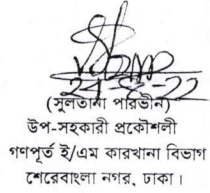 ২৪-৮-২২
(সুলতানা পারভীন)
উপ-সহকারী প্রকৌশলী
গণপূর্ত ই/এম কারখানা বিভাগ
শেরেবাংলা নগর, ঢাকা।